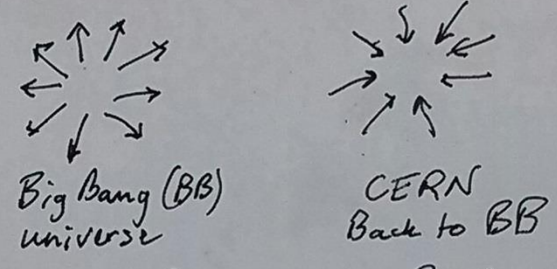 Big Bang (BB)
universe
CERN
Back to BB